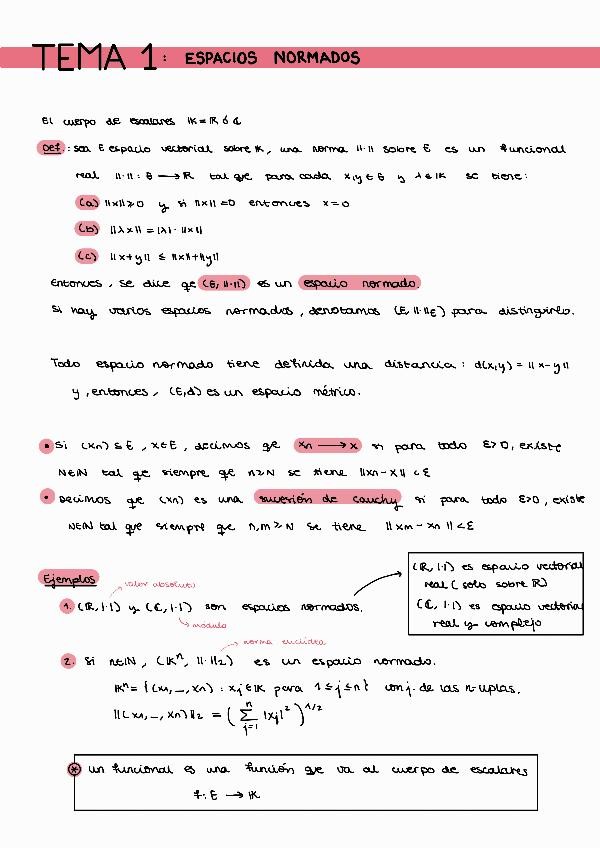 TEMA 1: ESPACIOS NORMADOS
El cuerpo de escalares IK = IR ó ℂ
Def.: sea E espacio vectorial sobre IK, una norma ||·|| sobre E es un funcional
real ||·|| : E → IR tal que para cada x,y ∈ E y λ ∈ IK se tiene:
(a) ||x|| ≥ 0 y si ||x|| = 0 entonces x = 0
(b) ||λx|| = |λ|·||x||
(c) ||x+y|| ≤ ||x||+||y||
Entonces, se dice qe (E, ||·||) es un espacio normado.
Si hay varios espacios normados, denotamos (E ||·||E) para distinguirlo.
Todo espacio normado tiene definida una distancia: d(x,y) = ||x-y||
y, entonces, (E,d) es un espacio métrico.
• Si (xn) ⊆ E, x ∈ E, decimos qe xn → x si para todo ε>0, existe
N∈IN tal qe siempre qe n≥N se tiene ||xn-x|| < ε
• Decimos qe (xn) es una sucesión de cauchy si para todo ε>0, existe
N∈IN tal que siempre qe n,m ≥ N se tiene ||xm - xn|| < ε
Ejemplos
valor absoluto
1. (IR, |·|) y (ℂ, |·|) son espacios normados.
módulo
(IR, |·|) es espacio vectorial
real (solo sobre IR)
(ℂ, |·|) es espacio vectorial
real y complejo
norma euclídea
2. Si n∈IN, (IKⁿ, ||·||2) es un espacio normado.
IKⁿ = {(x1,...,xn) : xj ∈ IK para 1≤j≤n} conj. de las n-uplas.
||(x1,...,xn)||2 = (∑ⁿj=1 |xj|²)^1/2
* un funcional es una función que va al cuerpo de escalares
f: E → IK